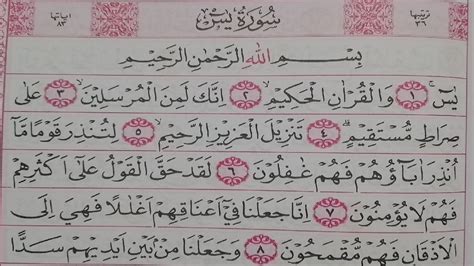 ترتيبها ٣٦ سُورَةُ يٰسٓ اٰياتها ٨٣
بِسْمِ اللهِ الرَّحْمٰنِ الرَّحِيْمِ
يٰسۤ ۚ ١ وَالْقُرْاٰنِ الْحَكِيْمِۙ ٢ اِنَّكَ لَمِنَ الْمُرْسَلِيْنَۙ ٣ عَلٰى
صِرَاطٍ مُّسْتَقِيْمٍۗ ٤ تَنْزِيْلَ الْعَزِيْزِ الرَّحِيْمِۙ ٥ لِتُنْذِرَ قَوْمًا مَّآ
اُنْذِرَ اٰبَاۤؤُهُمْ فَهُمْ غٰفِلُوْنَ ٦ لَقَدْ حَقَّ الْقَوْلُ عَلٰٓى اَكْثَرِهِمْ
فَهُمْ لَا يُؤْمِنُوْنَ ٧ اِنَّا جَعَلْنَا فِيْٓ اَعْنَاقِهِمْ اَغْلٰلًا فَهِيَ اِلَى
الْاَذْقَانِ فَهُمْ مُّقْمَحُوْنَ ٨ وَجَعَلْنَا مِنْۢ بَيْنِ اَيْدِيْهِمْ سَدًّا